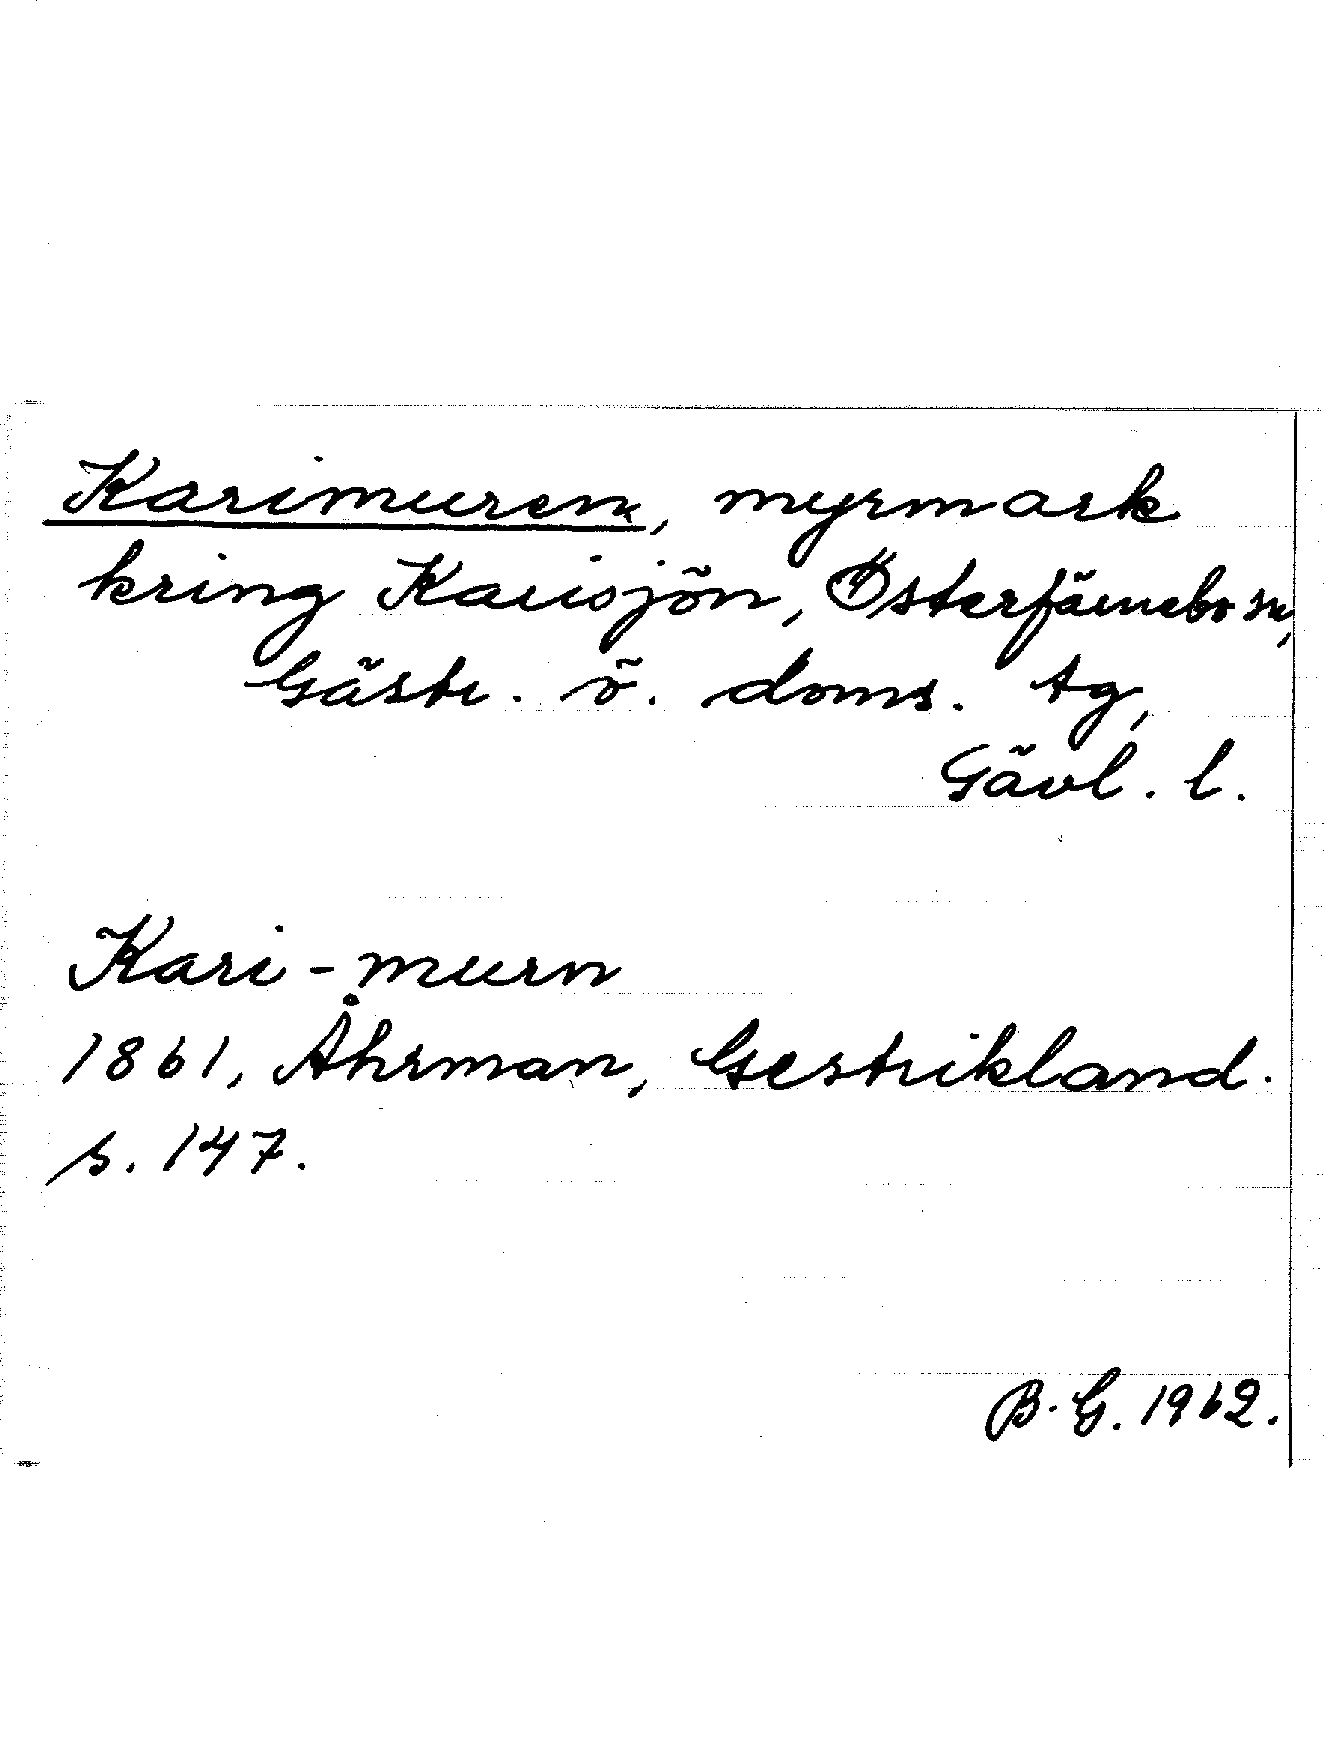 Karimuren, myrmark
kring Karisjön, Österfärnebo sn,
Gästr. ö. doms. tg,
Gävl. l.
Kari-murn
1861, Åhrman, Gestrikland.
s. 147.
B. G. 1962.